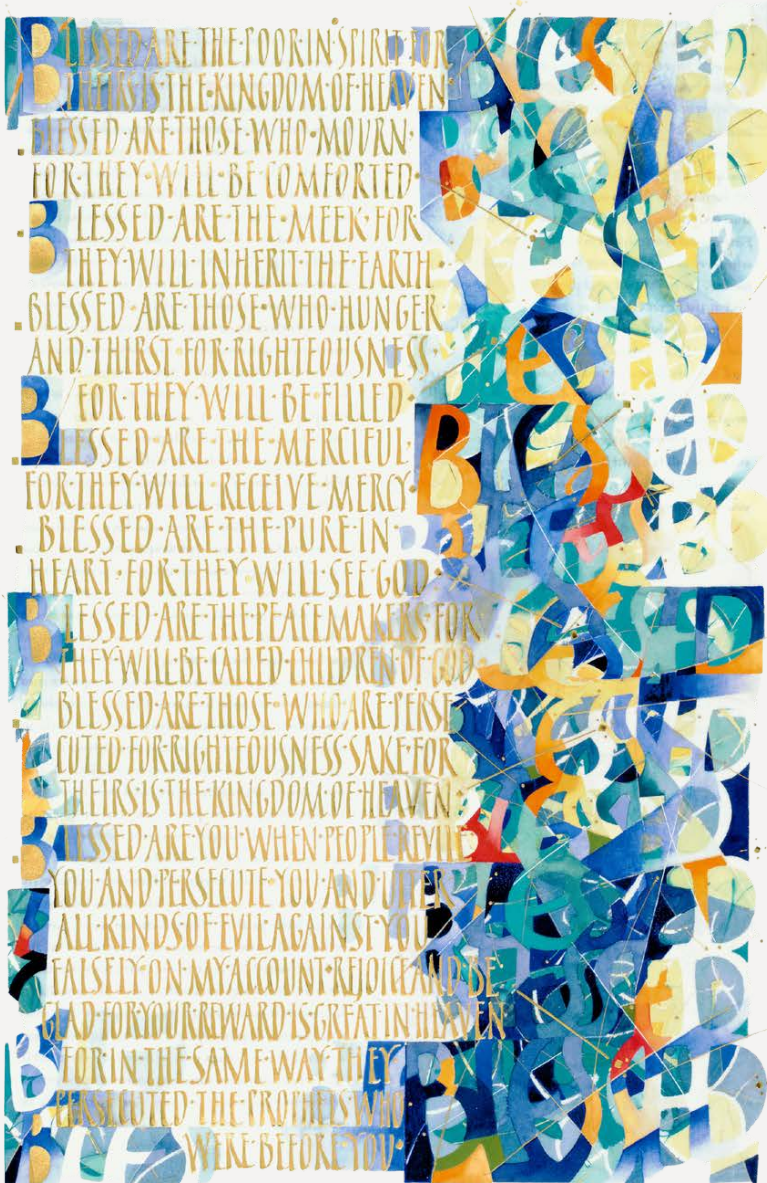 BLESSED·ARE·THE·POOR·IN·SPIRIT·FOR
THEIRS·IS·THE·KINGDOM·OF·HEAVEN
BLESSED·ARE·THOSE·WHO·MOURN·
FOR·THEY·WILL·BE·COMFORTED·
BLESSED·ARE·THE·MEEK·FOR
THEY·WILL·INHERIT·THE·EARTH
BLESSED·ARE·THOSE·WHO·HUNGER
AND·THIRST·FOR·RIGHTEOUSNESS·
FOR·THEY·WILL·BE·FILLED
BLESSED·ARE·THE·MERCIFUL·
FOR·THEY·WILL·RECEIVE·MERCY·
BLESSED·ARE·THE·PURE·IN·
HEART·FOR·THEY·WILL·SEE·GOD·
BLESSED·ARE·THE·PEACEMAKERS·FOR
THEY·WILL·BE·CALLED·CHILDREN·OF·GOD
BLESSED·ARE·THOSE·WHO·ARE·PERSE
CUTED·FOR·RIGHTEOUSNESS·SAKE·FOR
THEIRS·IS·THE·KINGDOM·OF·HEAVEN
BLESSED·ARE·YOU·WHEN·PEOPLE·REVILE
YOU·AND·PERSECUTE·YOU·AND·UTTER
ALL·KINDS·OF·EVIL·AGAINST·YOU
FALSELY·ON·MY·ACCOUNT·REJOICE·AND·BE
GLAD·FOR·YOUR·REWARD·IS·GREAT·IN·HEAVEN
FOR·IN·THE·SAME·WAY·THEY
PERSECUTED·THE·PROPHETS·WHO
WERE·BEFORE·YOU·